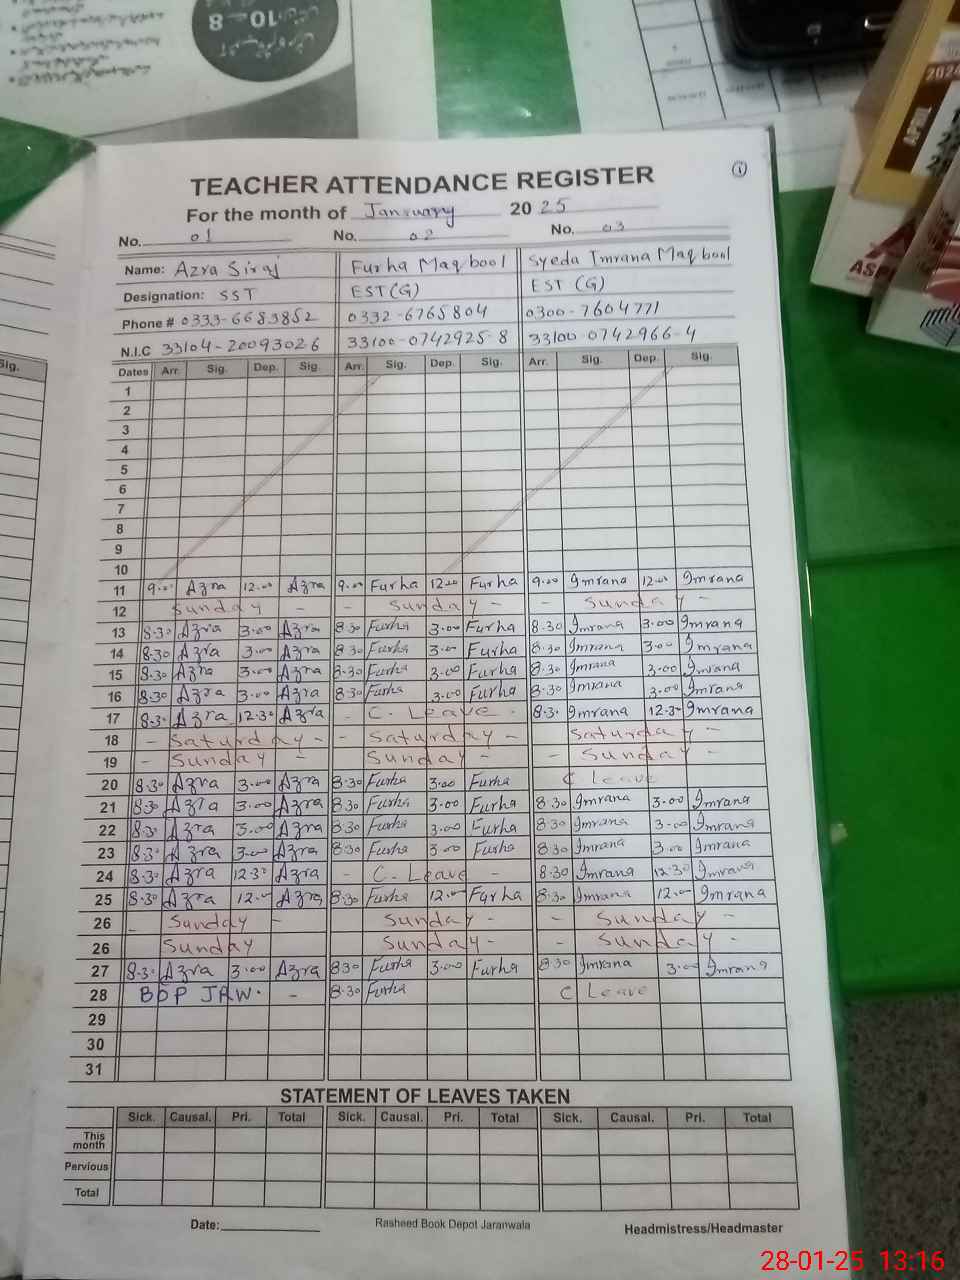 10 8
2024
APRIL
TEACHER ATTENDANCE REGISTER
For the month of January 2025
No. 01 No. 02 No. 03
Name: Azra Siraj Furha Maqbool Syeda Imrana Maqbool
Designation: SST EST(G) EST (G)
Phone # 0333-6683852 0332-6765804 0300-7604771
N.I.C 33104-20093026 33100-0742925-8 33100-0742966-4
Dates Arr. Sig. Dep. Sig. Arr. Sig. Dep. Sig. Arr. Sig. Dep. Sig.
1
2
3
4
5
6
7
8
9
10
11 9.00 Azra 12.00 Azra 9.00 Furha 12.00 Furha 9.00 Imrana 12.00 Imrana
12 Sunday - - Sunday - - Sunday -
13 8.30 Azra 3.00 Azra 8.30 Furha 3.00 Furha 8.30 Imrana 3.00 Imrana
14 8.30 Azra 3.00 Azra 8.30 Furha 3.00 Furha 8.30 Imrana 3.00 Imrana
15 8.30 Azra 3.00 Azra 8.30 Furha 3.00 Furha 8.30 Imrana 3.00 Imrana
16 8.30 Azra 3.00 Azra 8.30 Furha 3.00 Furha 8.30 Imrana 3.00 Imrana
17 8.30 Azra 12.30 Azra - C. Leave - 8.30 Imrana 12.30 Imrana
18 - Saturday - - Saturday - Saturday -
19 - Sunday - Sunday - - Sunday -
20 8.30 Azra 3.00 Azra 8.30 Furha 3.00 Furha C Leave
21 8.30 Azra 3.00 Azra 8.30 Furha 3.00 Furha 8.30 Imrana 3.00 Imrana
22 8.30 Azra 3.00 Azra 8.30 Furha 3.00 Furha 8.30 Imrana 3.00 Imrana
23 8.30 Azra 3.00 Azra 8.30 Furha 3.00 Furha 8.30 Imrana 3.00 Imrana
24 8.30 Azra 12.30 Azra - C. Leave - 8.30 Imrana 12.30 Imrana
25 8.30 Azra 12.00 Azra 8.30 Furha 12.00 Furha 8.30 Imrana 12.00 Imrana
26 - Sunday - Sunday - - Sunday -
26 Sunday Sunday - - Sunday -
27 8.30 Azra 3.00 Azra 8.30 Furha 3.00 Furha 8.30 Imrana 3.00 Imrana
28 BOP JRW. - 8.30 Furha C Leave
29
30
31
STATEMENT OF LEAVES TAKEN
Sick. Causal. Pri. Total Sick. Causal. Pri. Total Sick. Causal. Pri. Total
This month
Pervious
Total
Date: Rasheed Book Depot Jaranwala Headmistress/Headmaster
28-01-25 13:16